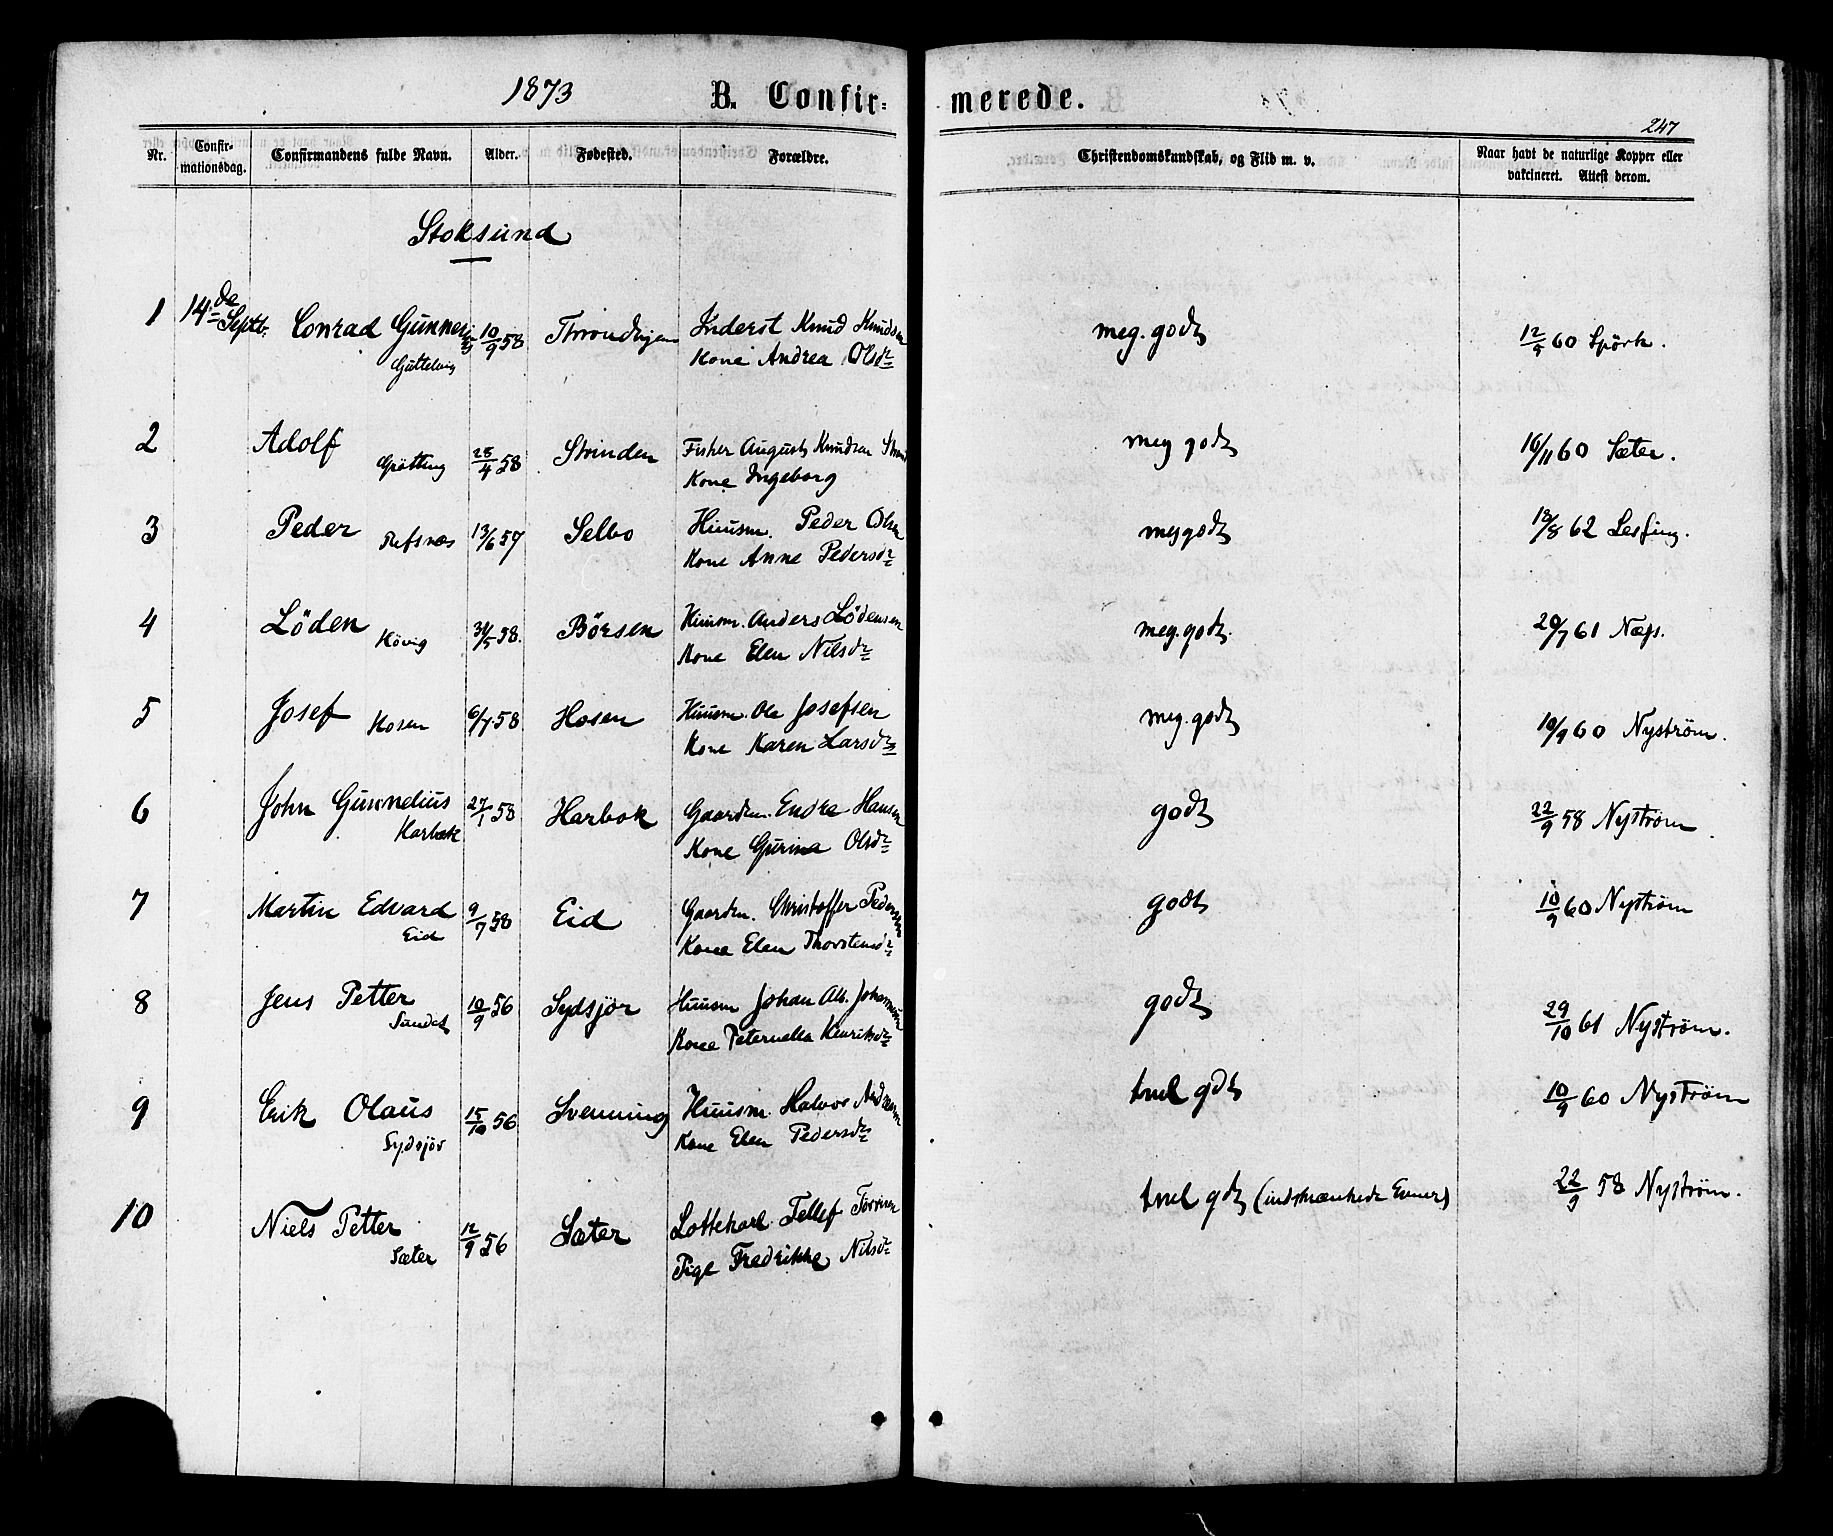 1873 B. Confir-merede.
247
Nr. Confir-mationsdag. Confirmandens fulde Navn. Alder. Fødested. Forældre. Christendomskundskab, og Flid m. v. Naar havt de naturlige Kopper eller vakcineret. Attest derom.
Stoksund
1 14de Septbr. Conrad Gunnerius 10/9 58 Throndhjem Inderst Knud Knudsen meg. godt 12/9 60 Spörk.
Kone Andrea Olsdr
2 Adolf Grötting 28/4 58 Strinden Fisker August Knudsen meg godt 16/11 60 Sæter.
Kone Ingeborg
3 Peder Refsnes 13/6 57 Selbo Huusm. Peder Olsen meg godt 18/8 62
Kone Anne Pedersdr
4 Löden Hövig 31/5 58. Börsen Huusm. Anders Lödensen meg. godt. 20/7 61 Næss.
Kone Elen Nilsdr
5 Josef Hosen 6/4 58 Hosen Huusm. Ole Josefsen meg. godt 10/9 60 Nyström.
Kone Karen Larsdr
6 John Gunnelius Harbak 27/1 58 Harbak Gaardm. Endre Hansen godt 22/9 58 Nyström.
Kone Gurina Olsdr
7 Martin Edvard Eid 9/7 58 Eid Gaardm. Christoffer Pedersen godt 10/9 60 Nyström
Kone Elen Thorstensdr
8 Jens Petter Sundet 10/9 56 Sydsjör Huusm Johan Alb. Johannesen godt 29/10 61 Nyström.
Kone Peternella Henriksdr
9 Erik Olaus Sydsjör 15/10 56 Svenning Huusm Halvor Andersen tvvl godt 10/9 60 Nyström
Kone Elen Pedersdr
10 Niels Petter Sæter 12/9 56 Sæter Lottekarl Tellef tvvl godt (indskrænkede Evner) 22/9 58 Nyström.
Pige Fredrikke Nilsdr